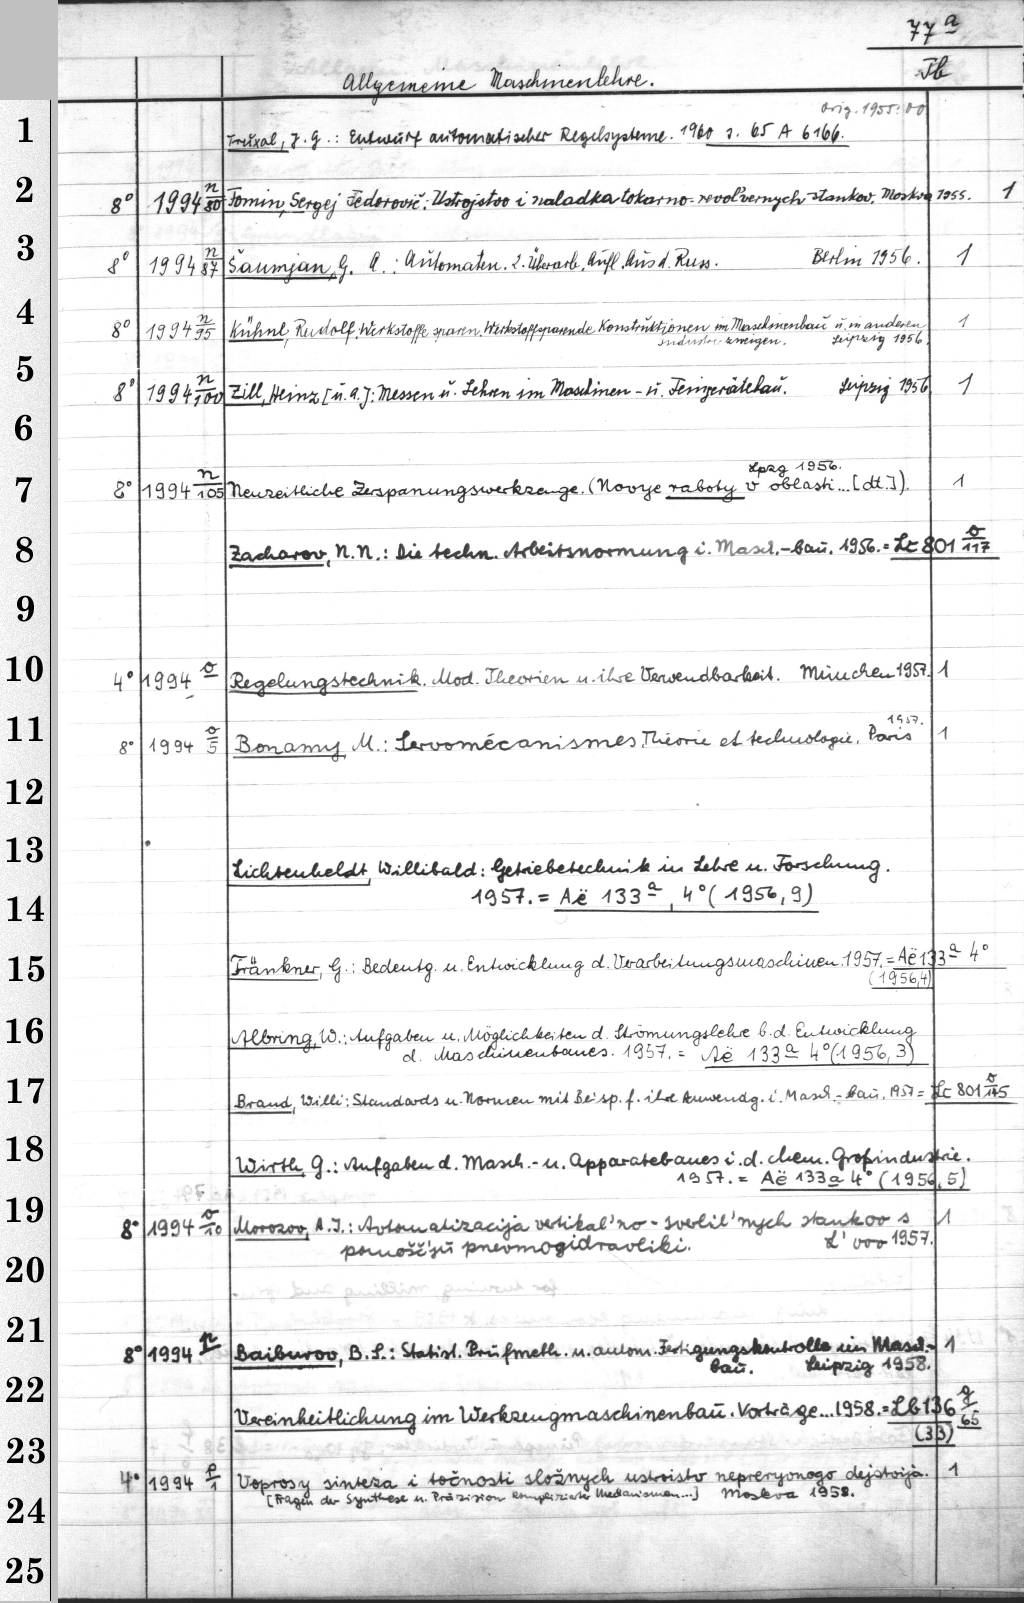 77a
Allgemeine Maschinenlehre. Tb
orig. 1955: 00
1 Truxal, J. G.: Entwurf automatischer Regelsysteme. 1960 s. 65 A 6166.
2 8° 1994 n/80 Fomin, Sergej Fedorovič: Ustrojstvo i naladka tokarno-revol'vernych stankov. Moskva 1955. 1
3 8° 1994 n/87 Šaumjan, G. A.: Automaten. 2. Überarb. Aufl. Aus d. Russ. Berlin 1956. 1
4 8° 1994 n/95 Kühnl, Rudolf. Werkstoffe sparen. Werkstoffsparende Konstruktionen im Maschinenbau u. in anderen 1
Industriezweigen. Leipzig 1956.
5 8° 1994 n/100 Zill, Heinz [u. a.]: Messen u. Lehren im Maschinen- u. Feingerätebau. Leipzig 1956 1
6
Lpzg 1956.
7 8° 1994 n/105 Neuzeitliche Zerspanungswerkzeuge. (Novye raboty v oblasti... [dt.]). 1
8 Zacharov, N. N.: Die techn. Arbeitsnormung i. Masch.-bau. 1956. = Lc 801 o/117
9
10 4° 1994 o Regelungstechnik. Mod. Theorien u. ihre Verwendbarkeit. München 1957. 1
1957.
11 8° 1994 o/5 Bonamy, M.: Servomécanismes. Théorie et technologie. Paris 1
12
13 Lichtenheldt, Willibald: Getriebetechnik in Lehre u. Forschung.
14 1957. = Aë 133a, 4° (1956, 9)
15 Fränkner, G.: Bedeutg. u. Entwicklung d. Verarbeitungsmaschinen. 1957. = Aë 133a 4°
(1956,4)
16 Albring, W.: Aufgaben u. Möglichkeiten d. Strömungslehre b. d. Entwicklung
d. Maschinenbaues. 1957. = Aë 133a 4° (1956, 3)
17 Brand, Willi: Standards u. Normen mit Beisp. f. ihre Anwendg. i. Masch.-bau. 1957 = Lc 801 o/145
18 Wirth, G.: Aufgaben d. Masch.- u. Apparatebaues i. d. chem. Großindustrie.
1957. = Aë 133a 4° (1956, 5)
19 8° 1994 o/10 Morozov, A. I.: Avtomatizacija vertikal'no-sverlil'nych stankov s 1
pomošč'jŭ pnevmogidravliki. L'vov 1957.
20
21 8° 1994 p Baiburov, B. S.: Statist. Prüfmeth. u. autom. Fertigungskontrolle im Masch.- 1
bau. Leipzig 1958.
22 Vereinheitlichung im Werkzeugmaschinenbau. Vorträge... 1958. = Lb 136 g/65
23 (33)
24 4° 1994 p/1 Voprosy sinteza i točnosti složnych ustroistv nepreryvnogo dejstvija. 1
[Fragen der Synthese u. Präzision komplizierter Mechanismen...] Moskva 1958.
25